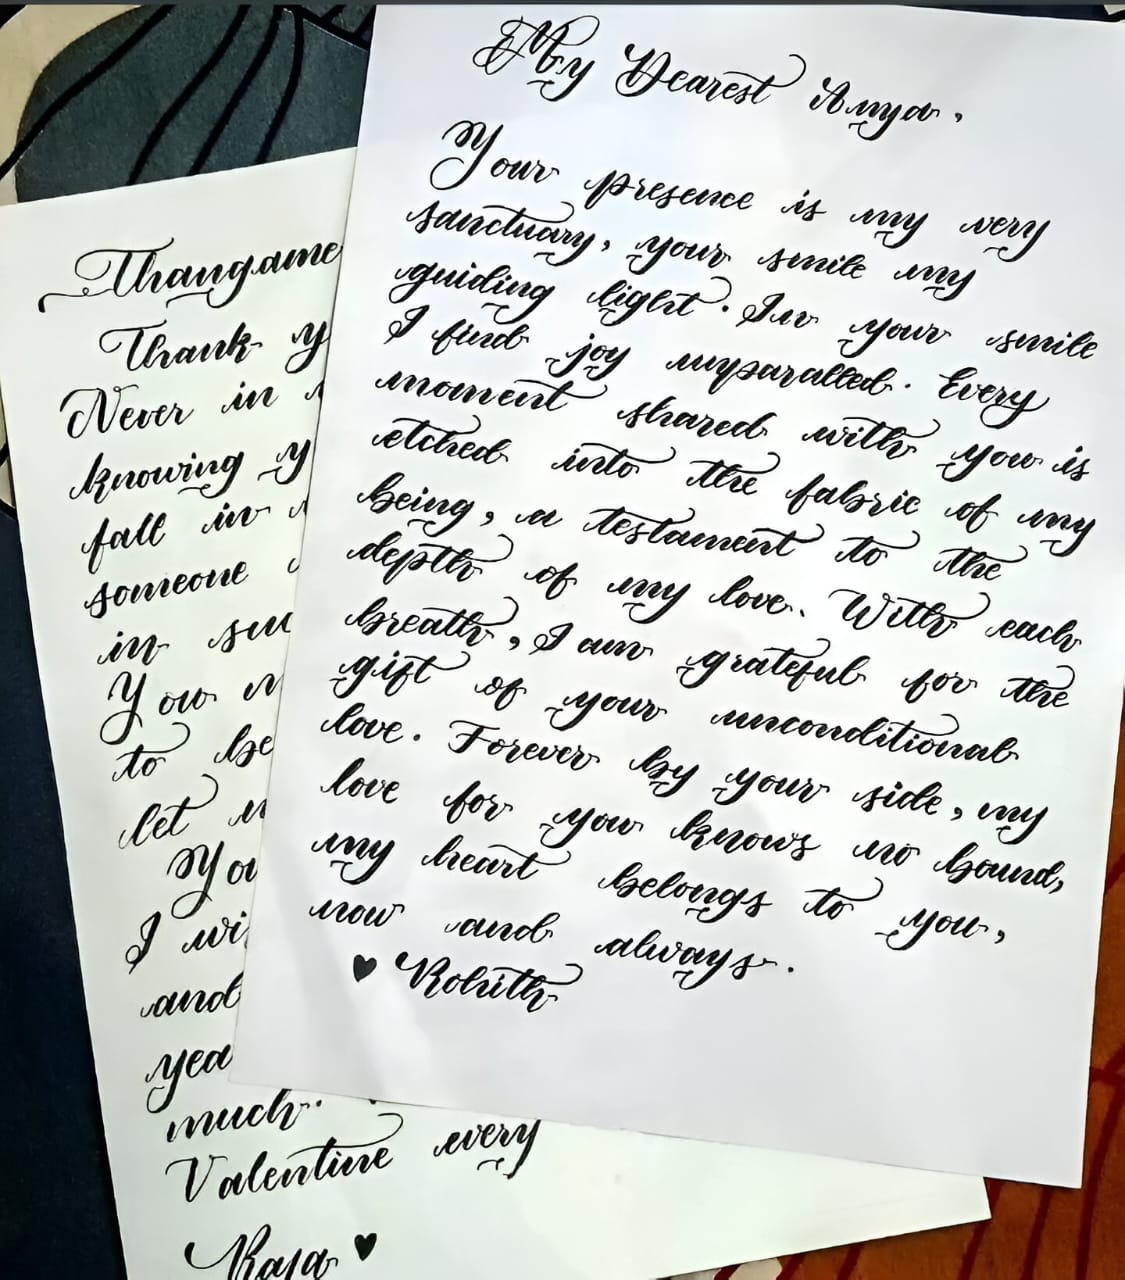 My Dearest Amya,
Your presence is my very
sanctuary, your smile my
guiding light. In your smile
I find joy unparalled. Every
moment shared with you is
etched into the fabric of my
being, a testament to the
depth of my love. With each
breath, I am grateful for the
gift of your unconditional
love. Forever by your side, my
love for you knows no bound,
my heart belongs to you,
now and always.
♥ Rohith
Thangame
Thank y
Never in
knowing y
fall in
someone
in suc
You m
to be
let m
You
I wi
and
yea
much.
Valentine every
Raja ♥